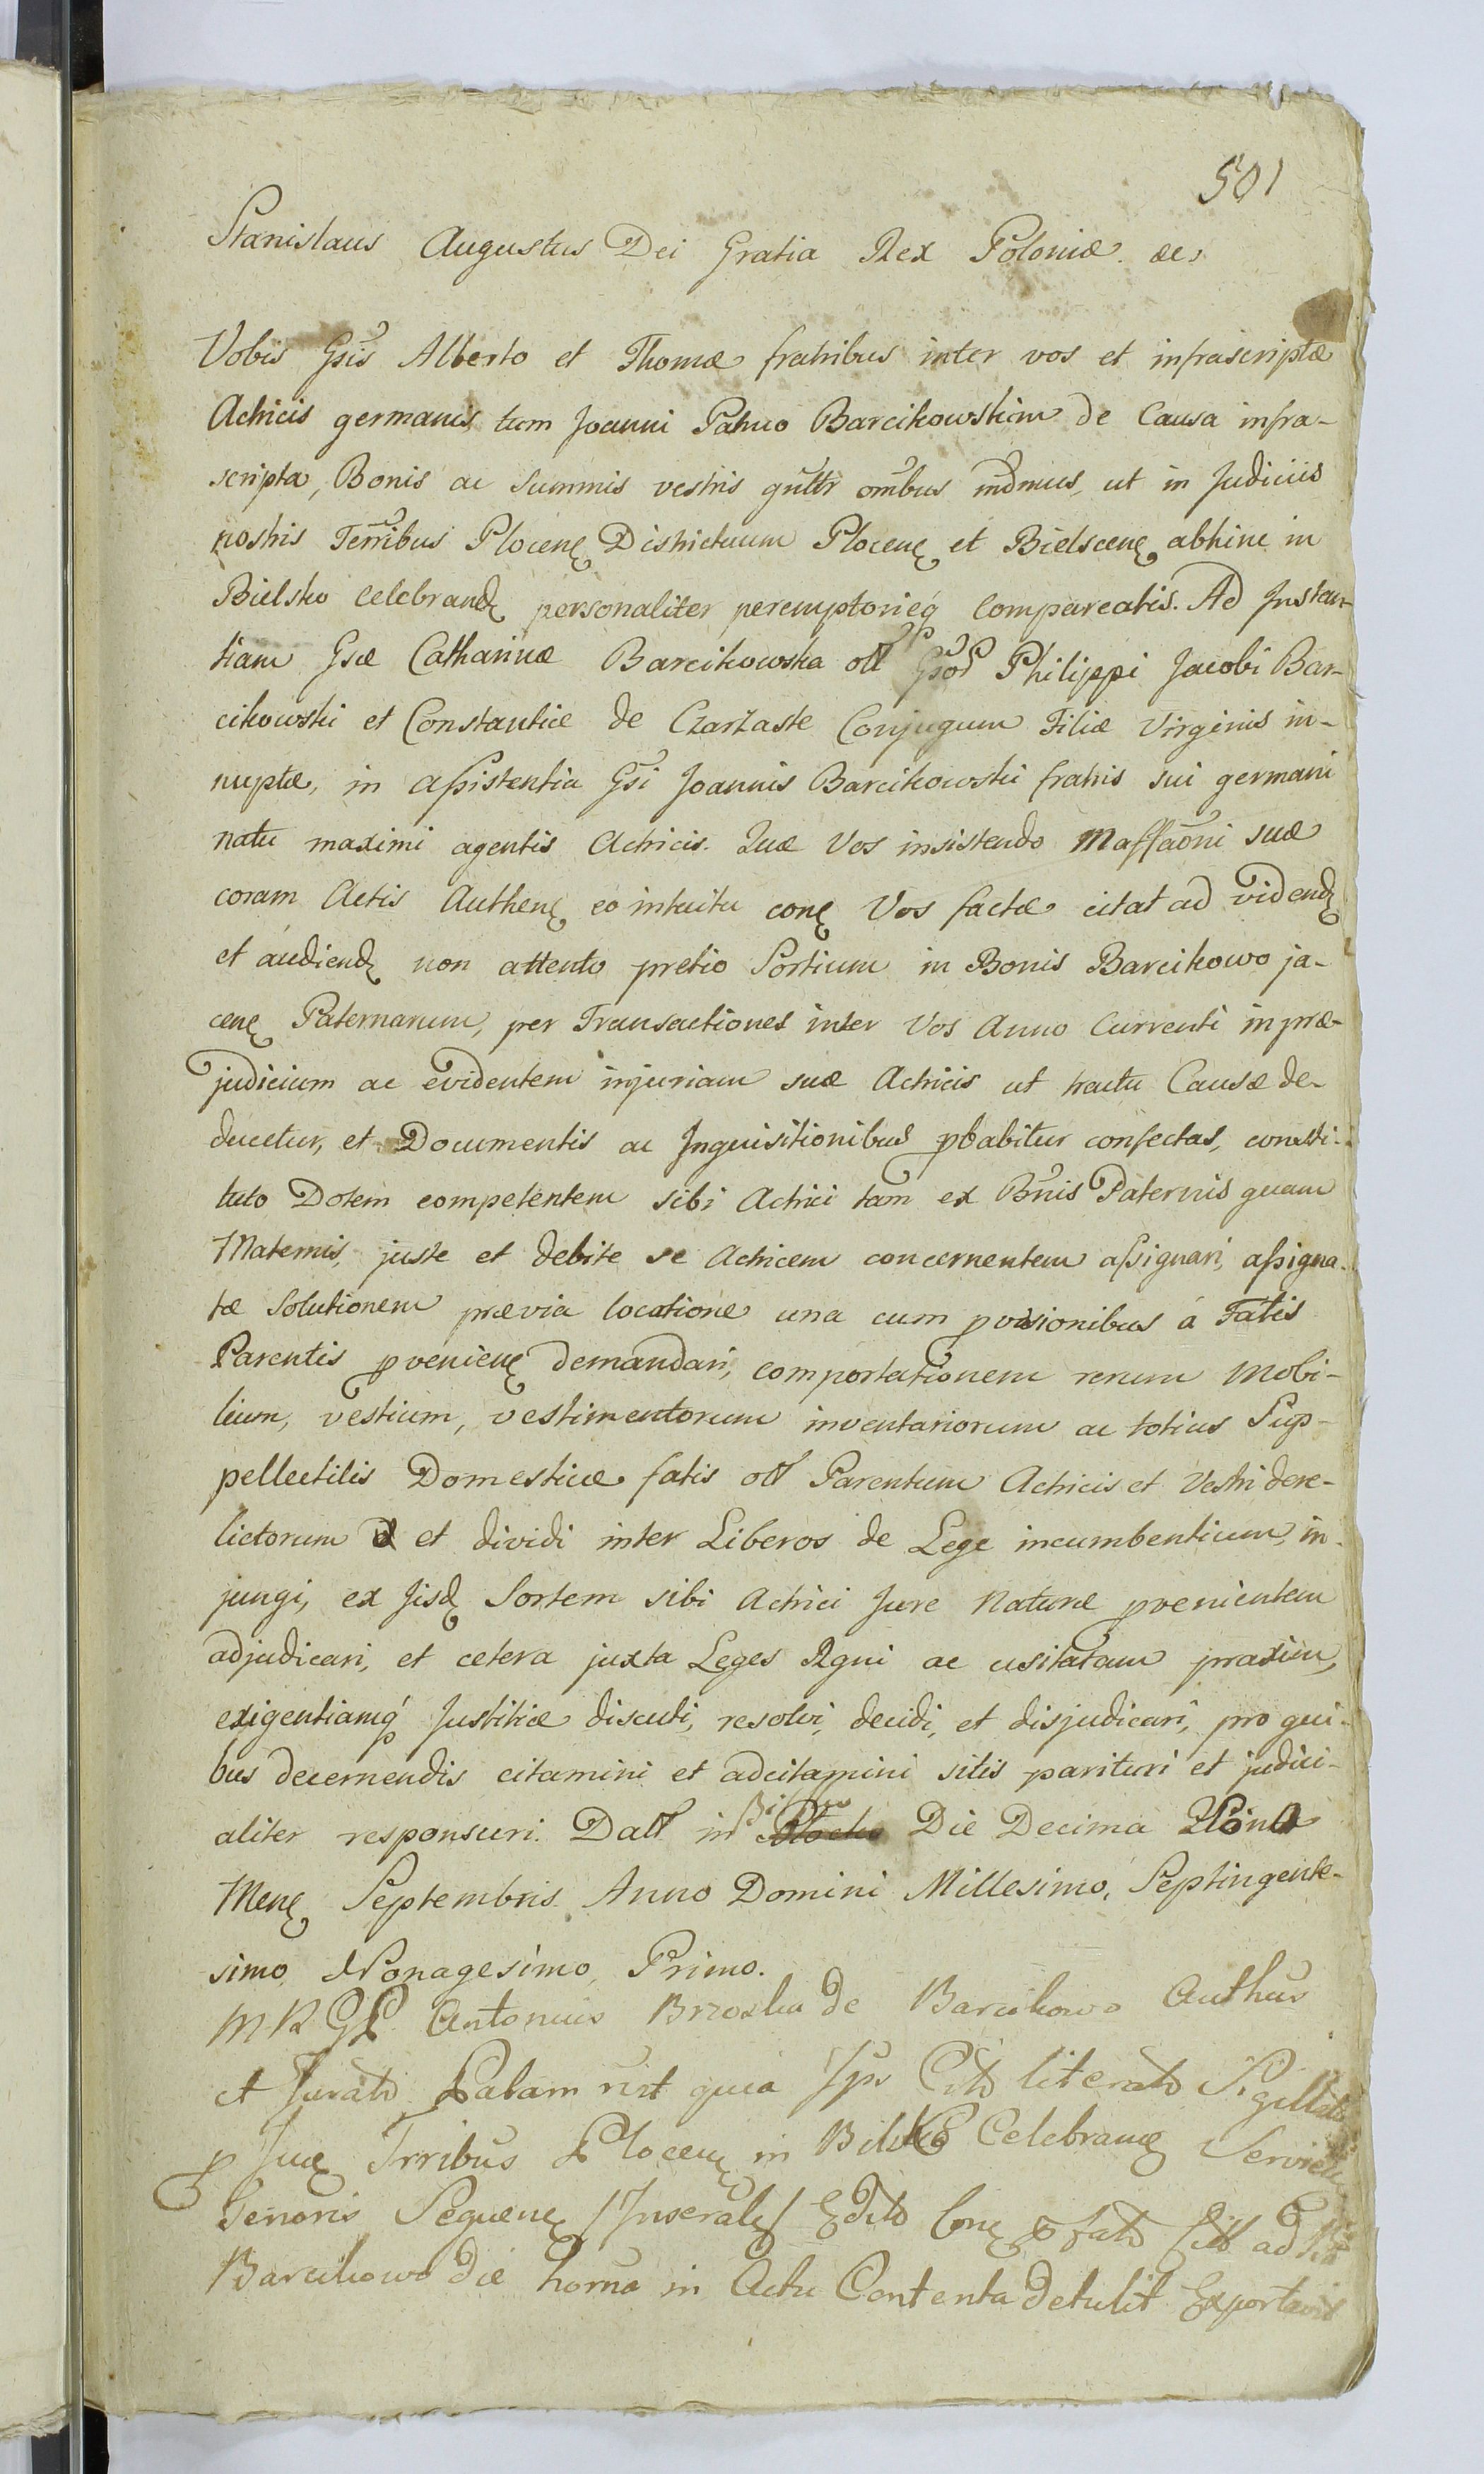 501
Stanislaus Augustus Dei Gratia Rex Poloniæ. &c,
Vobis Gsis Alberto et Thomæ fratribus inter vos et infrascriptæ
Actricis germanis, tum Joanni Patruo Barcikowskim de Causa infra-
scripta, Bonis ac Summis vestris gnltr omibus mdmus, ut in Judiciis
nostris Terribus Plocen Districtuum Plocen et Bielscen abhinc in
Bielsko celebrand personaliter peremptorieq compareatis. Ad Instan-
tiam Gsæ Catharinæ Barcikowska oll Gsor Philippi Jacobi Bar-
cikowski et Constantiæ de Czarzaste Conjugum Filiæ Virginis in-
nuptæ, in assistentia Gsi Joannis Barcikowski fratris sui germani
natu maximi agentis Actricis. Quæ Vos insistendo Maffaoni suæ
coram Actis Authen eo intuitu con Vos factæ citat ad vidend
et audiend non attento pretio Sortium in Bonis Barcikowo ja-
cen Paternarum, per Transactiones inter Vos Anno Currenti in præ-
judicium ac evidentem injuriam suæ Actricis ut tractu Causæ de-
ducetur, et Documentis ac Inquisitionibus pbabitur confectas, consti-
tuto Dotem competentem sibi Actrici tam ex Bnis Paternis quam
Maternis, juste et debite se Actricem concernentem assignari, assigna-
tæ Solutionem prævia locatione una cum pvisionibus à Fatis
Parentis pvenien demandari, comportationem rerum Mobi-
lium, vestium, vestimentorum inventariorum ac totius Sup-
pellectilis Domesticæ fatis oll Parentum Actricis et Vestri dere-
lictorum et dividi inter Liberos de Lege incumbentium, in-
jungi, ex Jisd Sortem sibi Actrici Jure Naturæ pvenientem
adjudicari, et cetera juxta Leges Rgni ac usitatam praxim,
exigentiamq Justitiæ discuti, resolvi, decidi, et disjudicari, pro qui-
bus decernendis citamini et adcitamini sitis parituri et judici-
aliter responsuri. Datt in Bilsko Die Decima Nona
Men Septembris Anno Domini Millesimo, Septingente-
simo Nonagesimo, Primo.
MRGP. Antonius Brzoska de Barcikowo Authus
et Juratus Palam rvit quia Jps Citt literatt Sigillatt
p Jue Trribus Plocen in Bilsko Celebran
Tenoris Sequen /Inseratr/ Editt Con fatt Citt ad
Barcikowo die horna in Actu Contenta detulit Exportavit